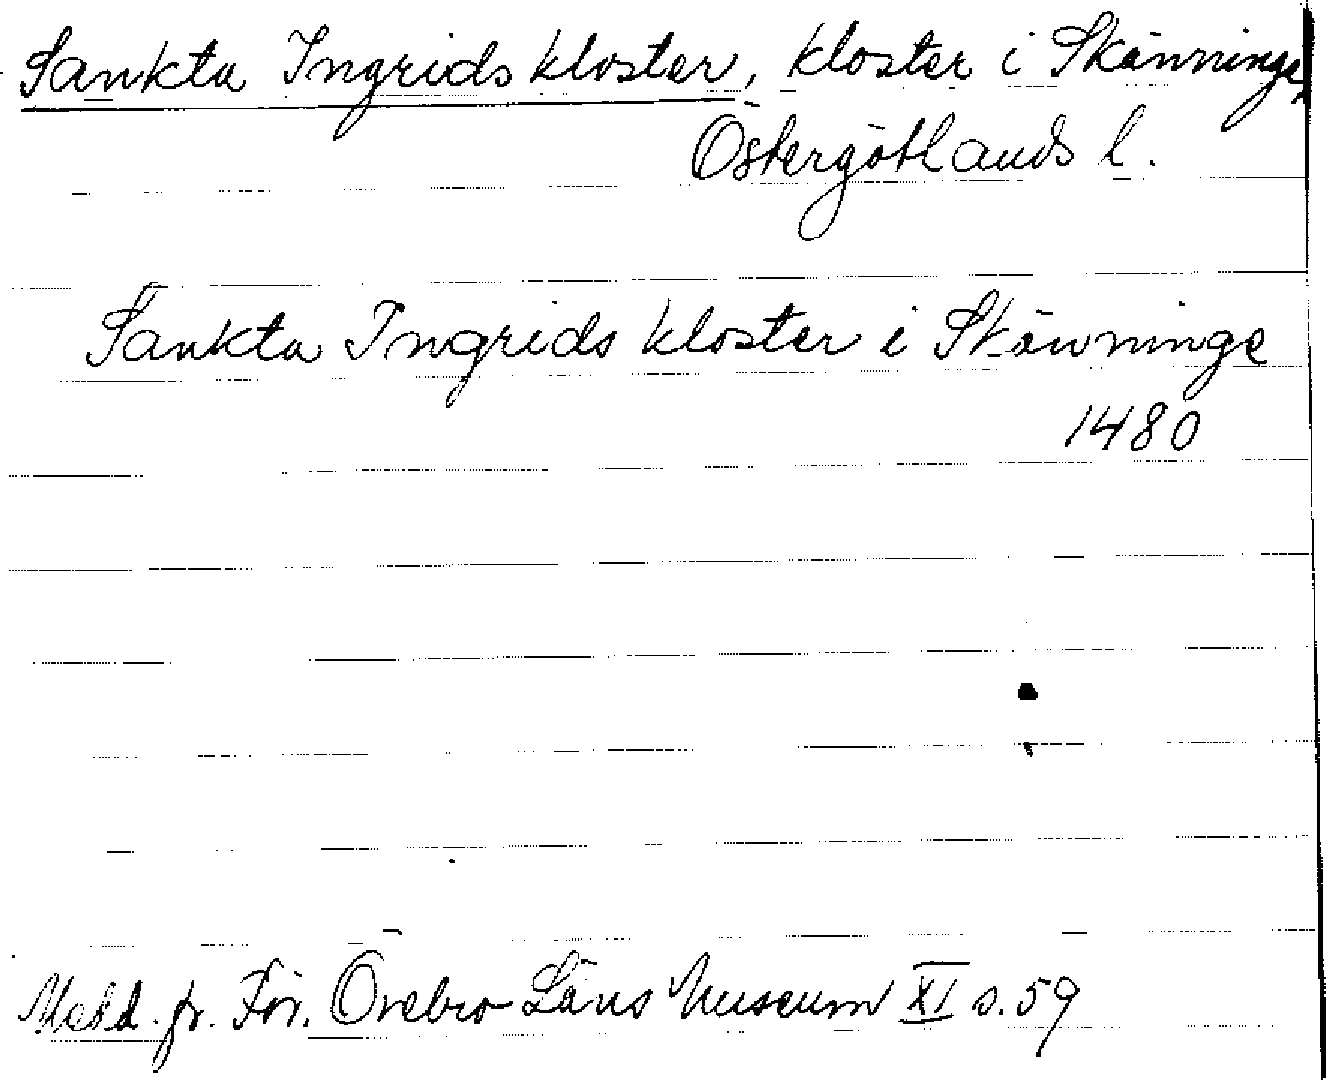 Sankta Ingrids kloster, kloster i Skänninge,
Östergötlands l.
Sankta Ingrids kloster i Skänninge
1480
Medd. fr. För. Örebro Läns Museum XI s. 59